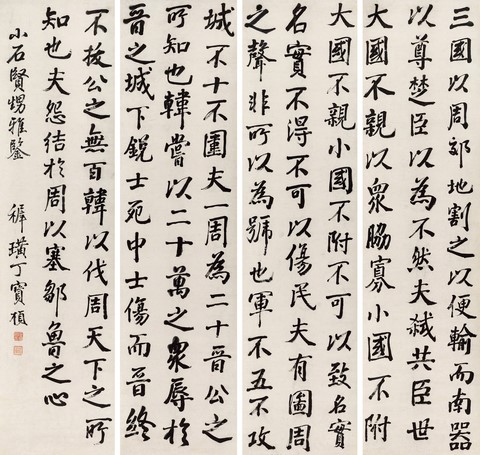 三國以周郊地割之以便輸而南器
以尊楚臣以為不然夫弒共臣世
大國不親以眾脇寡小國不附
大國不親小國不附不可以致名實
名實不得不可以傷民夫有圖周
之聲非所以為號也軍不五不攻
城不十不圍夫一周為二十晉公之
所知也韓嘗以二十萬之眾辱於
晉之城下銳士死中士傷而晉終
不拔公之無百韓以伐周天下之所
知也夫怨結於周以塞鄒魯之心
小石賢甥雅鑒 穉璜丁寶楨